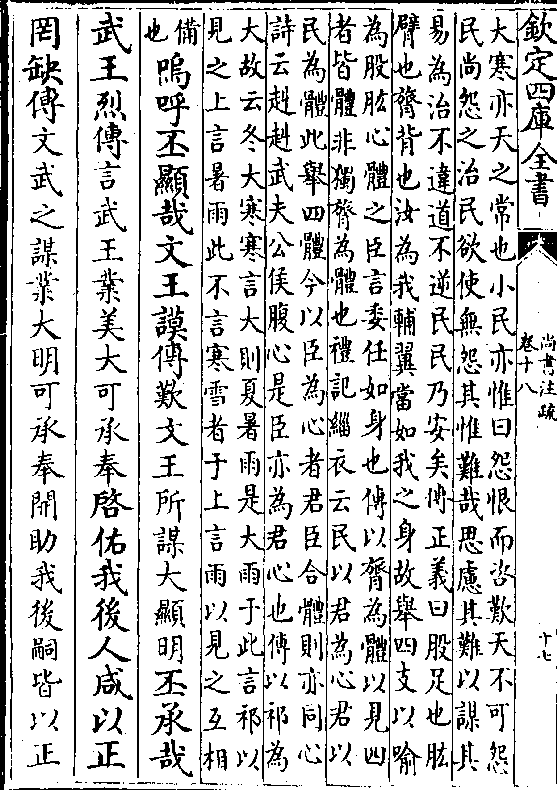 欽定四庫全書
尚書注疏
卷十八
十七
大寒亦天之常也小民亦惟曰怨恨而咨歎天不可怨
民尚怨之治民欲使無怨其惟難哉思慮其難以謀其
易為治不違道不逆民民乃安矣傳正義曰股足也肱
臂也膂背也汝為我輔翼當如我之身故舉四支以喻
為股肱心體之臣言委任如身也傳以膂為體以見四
者皆體非獨膂為體也禮記緇衣云民以君為心君以
民為體此舉四體今以臣為心者君臣合體則亦同心
詩云赳赳武夫公侯腹心是臣亦為君心也傳以祁為
大故云冬大寒寒言大則夏暑雨是大雨于此言祁以
見之上言暑雨此不言寒雪者于上言雨以見之互相
備也嗚呼丕顯哉文王謨傳歎文王所謀大顯明丕承哉
武王烈傳言武王業美大可承奉啓佑我後人咸以正
罔缺傳文武之謀業大明可承奉開助我後嗣皆以正